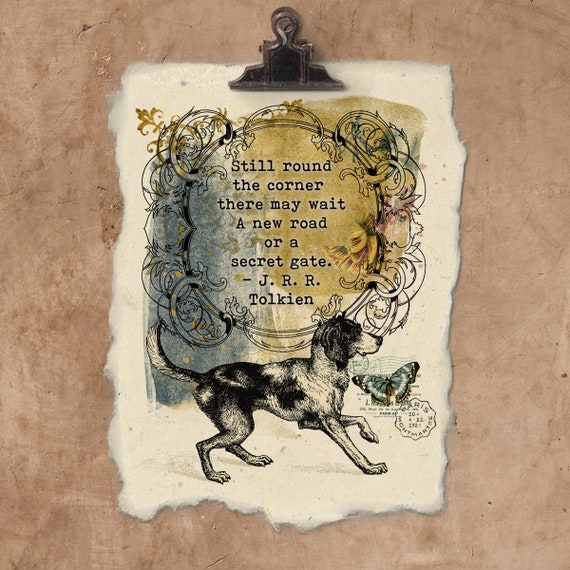 Still round
the corner
there may wait
A new road
or a
secret gate.
– J. R. R.
Tolkien
PARIS
MONTMARTRE